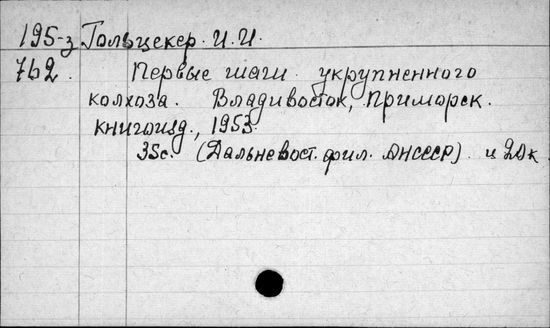 195-з Гольцекер. И.И.
762. Первые шаги укрупненного
колхоза. Владивосток, Приморск.
книгоизд., 1953.
35с. (Дальневост. фил. АНСССР). ц 20к